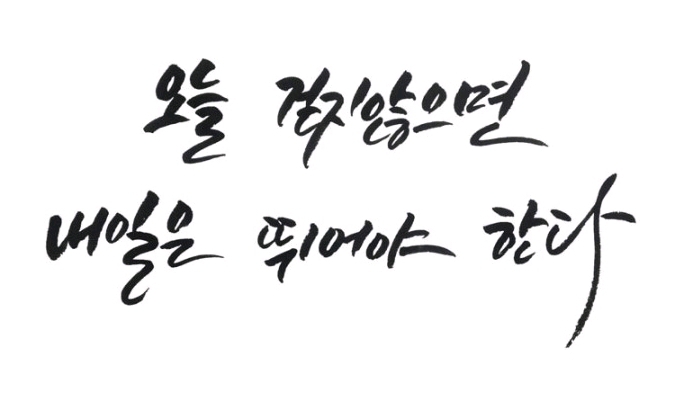 오늘 걷지않으면
내일은 뛰어야 한다